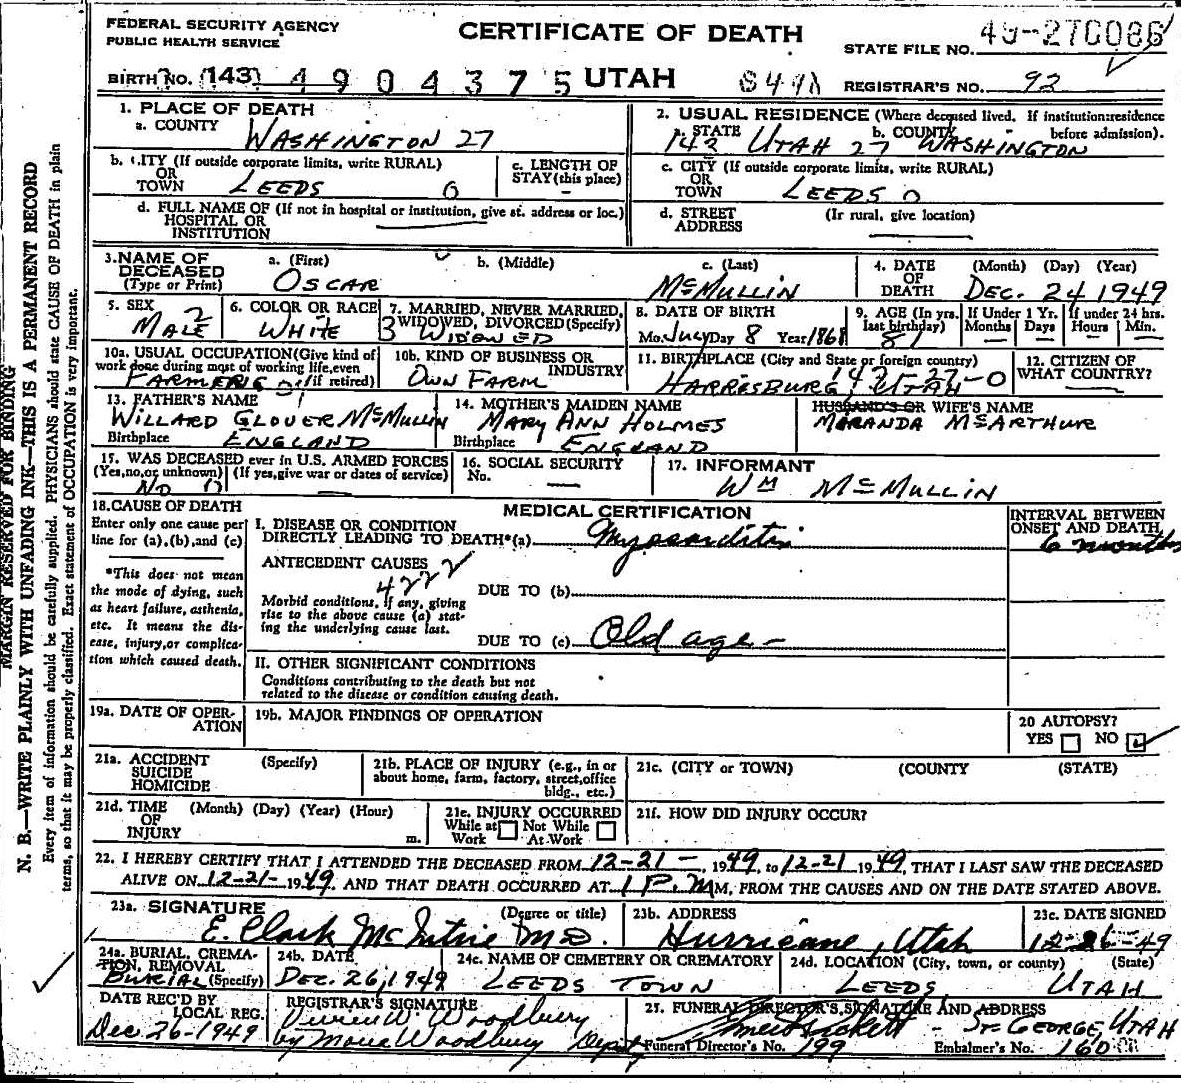 FEDERAL SECURITY AGENCY
PUBLIC HEALTH SERVICE
CERTIFICATE OF DEATH
STATE FILE NO. 49-270086
BIRTH NO. (143) 4904375 UTAH 8491 REGISTRAR'S NO. 92
MARGIN RESERVED FOR BINDING
N. B.—WRITE PLAINLY WITH UNFADING INK—THIS IS A PERMANENT RECORD
Every item of information should be carefully supplied. PHYSICIANS should state CAUSE OF DEATH in plain
terms, so that it may be properly classified. Exact statement of OCCUPATION is very important.
1. PLACE OF DEATH
a. COUNTY WASHINGTON 27
2. USUAL RESIDENCE (Where deceased lived. If institution: residence before admission).
a. STATE 142 UTAH 27 b. COUNTY WASHINGTON
b. CITY (If outside corporate limits, write RURAL) OR TOWN LEEDS 0
c. LENGTH OF STAY (this place) —
c. CITY (If outside corporate limits, write RURAL) OR TOWN LEEDS 0
d. FULL NAME OF (If not in hospital or institution, give st. address or loc.) HOSPITAL OR INSTITUTION
d. STREET ADDRESS (If rural, give location)
3. NAME OF DECEASED (Type or Print)
a. (First) OSCAR
b. (Middle)
c. (Last) McMULLIN
4. DATE OF DEATH (Month) (Day) (Year) DEC. 24 1949
5. SEX MALE 2
6. COLOR OR RACE WHITE
7. MARRIED, NEVER MARRIED, WIDOWED, DIVORCED (Specify) 3 WIDOWED
8. DATE OF BIRTH Mo. July Day 8 Year 1868
9. AGE (In yrs. last birthday) 81
If Under 1 Yr. Months — Days —
If under 24 hrs. Hours — Min. —
10a. USUAL OCCUPATION (Give kind of work done during most of working life, even if retired) FARMER
10b. KIND OF BUSINESS OR INDUSTRY OWN FARM
11. BIRTHPLACE (City and State or foreign country) 142-27-0 HARRISBURG, UTAH
12. CITIZEN OF WHAT COUNTRY? —
13. FATHER'S NAME WILLARD GLOVER McMULLIN
Birthplace ENGLAND
14. MOTHER'S MAIDEN NAME MARY ANN HOLMES
Birthplace ENGLAND
HUSBAND'S OR WIFE'S NAME MIRANDA McARTHUR
15. WAS DECEASED ever in U.S. ARMED FORCES (Yes, no, or unknown) (If yes, give war or dates of service) NO 0 —
16. SOCIAL SECURITY No. —
17. INFORMANT WM McMULLIN
18. CAUSE OF DEATH
Enter only one cause per line for (a), (b), and (c)
*This does not mean the mode of dying, such as heart failure, asthenia, etc. It means the disease, injury, or complication which caused death.
MEDICAL CERTIFICATION
INTERVAL BETWEEN ONSET AND DEATH
I. DISEASE OR CONDITION DIRECTLY LEADING TO DEATH*(a) Myocarditis 6 months
ANTECEDENT CAUSES 4222
Morbid conditions, if any, giving rise to the above cause (a) stating the underlying cause last.
DUE TO (b)
DUE TO (c) Old age -
II. OTHER SIGNIFICANT CONDITIONS
Conditions contributing to the death but not related to the disease or condition causing death.
19a. DATE OF OPERATION
19b. MAJOR FINDINGS OF OPERATION
20 AUTOPSY? YES NO ✓
21a. ACCIDENT SUICIDE HOMICIDE (Specify)
21b. PLACE OF INJURY (e.g., in or about home, farm, factory, street, office bldg., etc.)
21c. (CITY or TOWN) (COUNTY (STATE)
21d. TIME OF INJURY (Month) (Day) (Year) (Hour) m.
21e. INJURY OCCURRED While at Work Not While At Work
21f. HOW DID INJURY OCCUR?
22. I HEREBY CERTIFY THAT I ATTENDED THE DECEASED FROM 12-21-, 1949, to 12-21 1949, THAT I LAST SAW THE DECEASED
ALIVE ON 12-21- 1949. AND THAT DEATH OCCURRED AT 1 P.M M, FROM THE CAUSES AND ON THE DATE STATED ABOVE.
23a. SIGNATURE (Degree or title) E. Clark McIntire M.D.
23b. ADDRESS Hurricane, Utah
23c. DATE SIGNED 12-26-49
24a. BURIAL, CREMATION, REMOVAL (Specify) BURIAL
24b. DATE DEC. 26, 1949
24c. NAME OF CEMETERY OR CREMATORY LEEDS TOWN
24d. LOCATION (City, town, or county) (State) LEEDS UTAH
DATE REC'D BY LOCAL REG. Dec 26-1949
REGISTRAR'S SIGNATURE W. Woodbury
by Woodbury Deputy
25. FUNERAL DIRECTOR'S SIGNATURE AND ADDRESS - ST. GEORGE, UTAH
Funeral Director's No. 199 Embalmer's No. 160